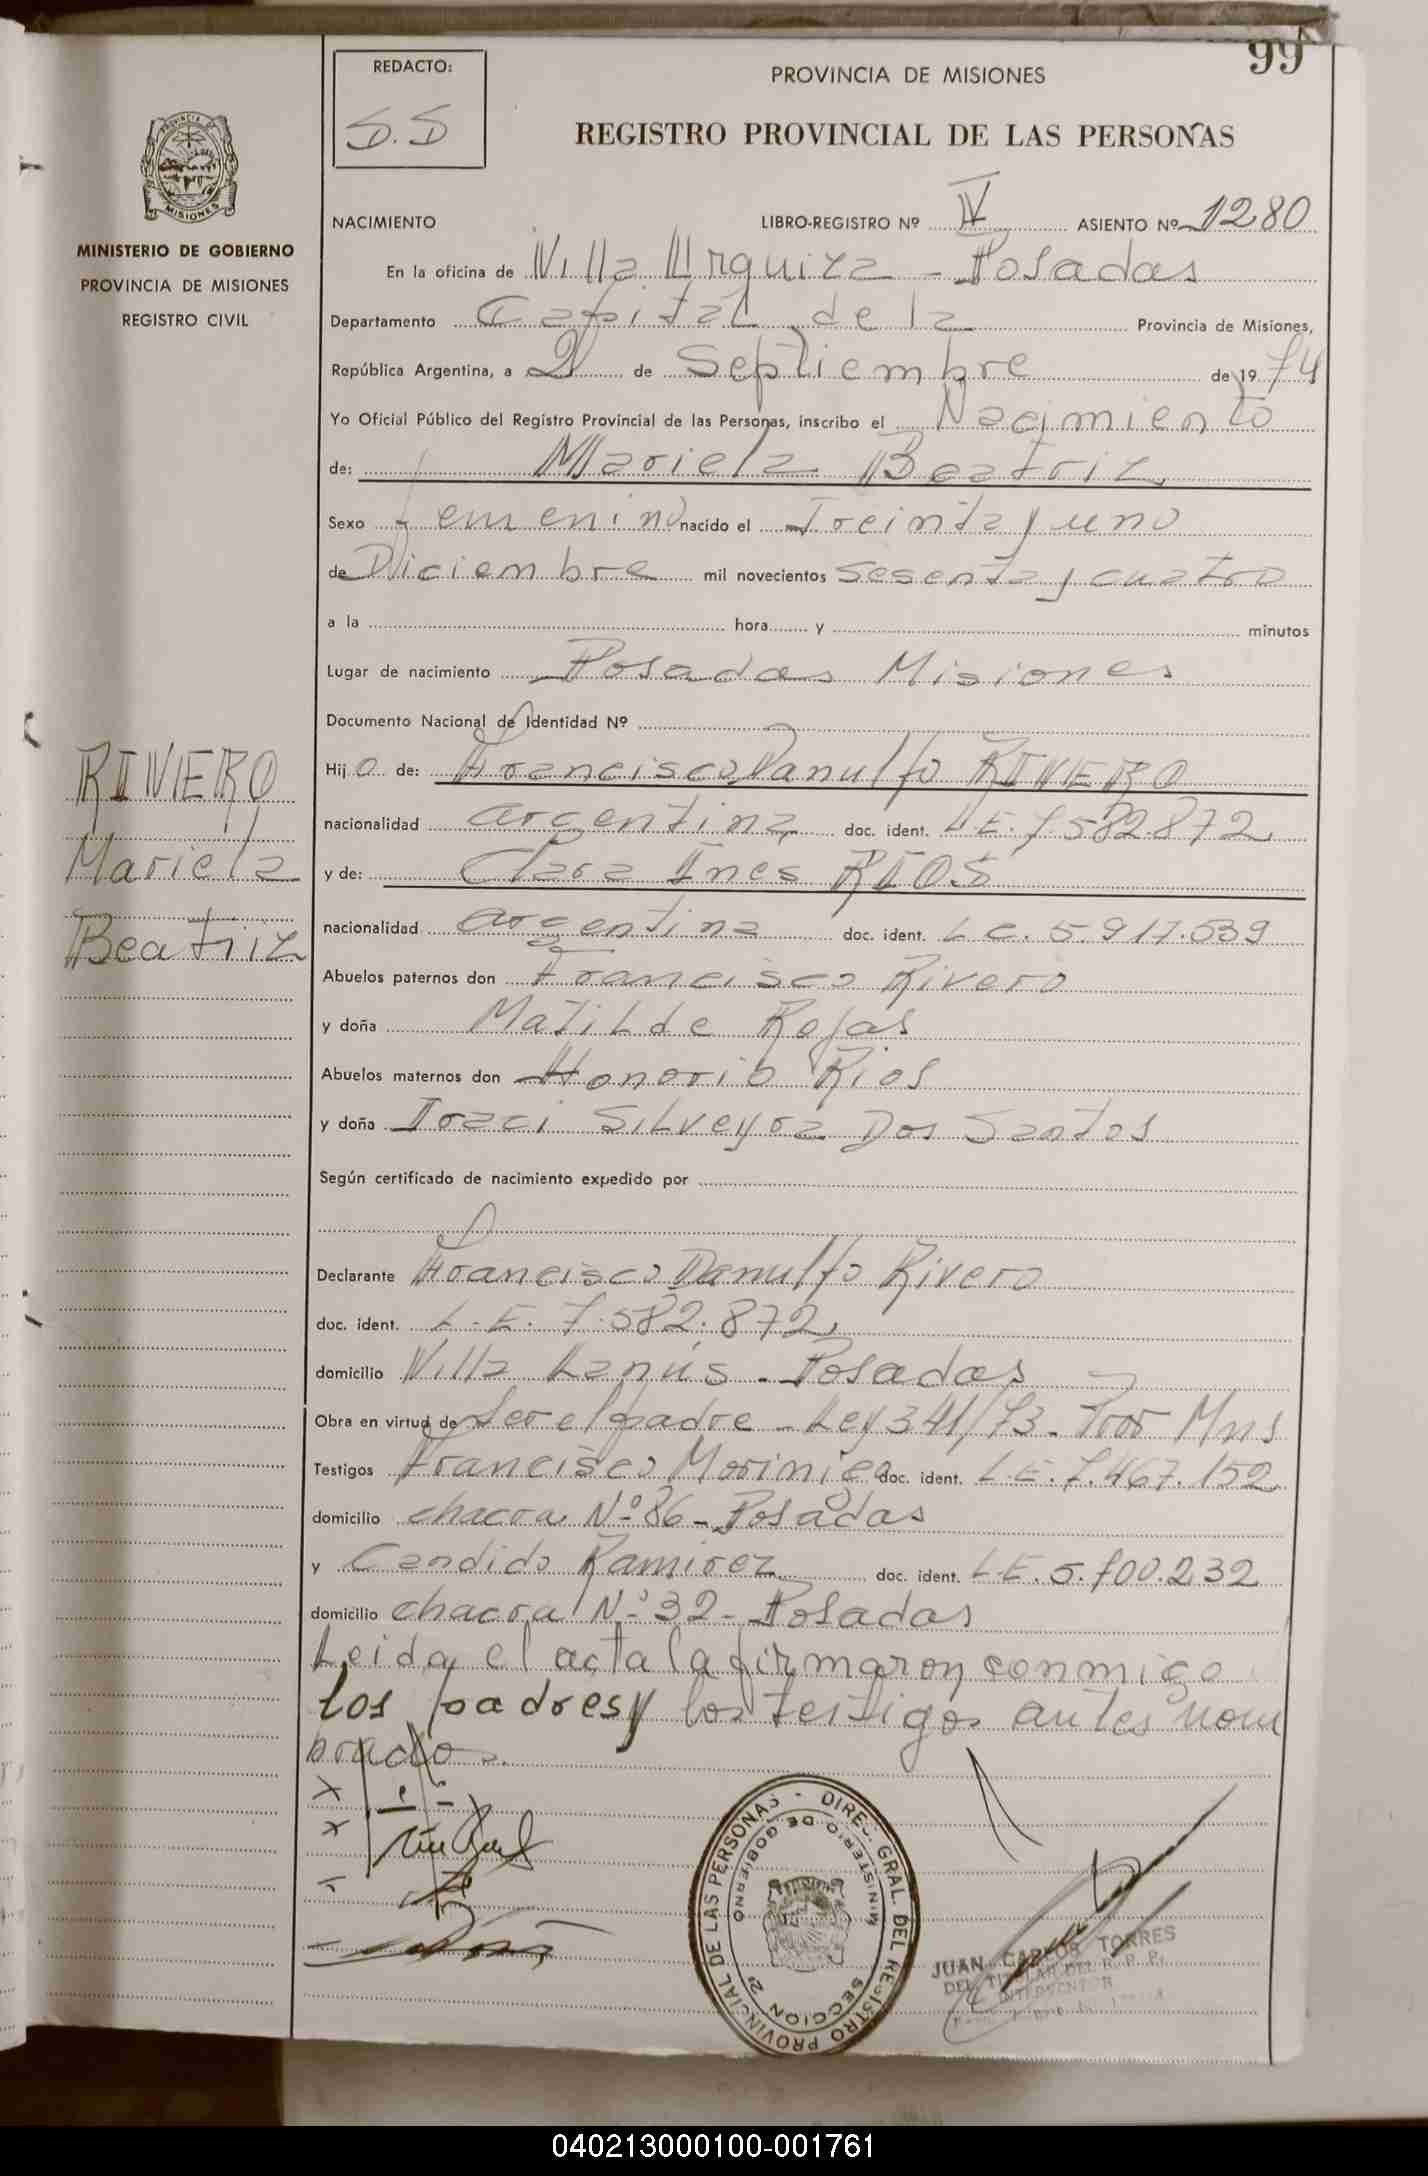 99
REDACTO:
S.S
PROVINCIA DE MISIONES
REGISTRO PROVINCIAL DE LAS PERSONAS
PROVINCIA DE
MISIONES
MINISTERIO DE GOBIERNO
PROVINCIA DE MISIONES
REGISTRO CIVIL
NACIMIENTO LIBRO-REGISTRO Nº IV ASIENTO Nº 1280
En la oficina de Villa Urquiza - Posadas
Departamento Capital de la Provincia de Misiones,
República Argentina, a 2 de Septiembre de 19 74
Yo Oficial Público del Registro Provincial de las Personas, inscribo el Nacimiento
de: Mariela Beatriz
Sexo femenino nacido el Treinta y uno
de Diciembre mil novecientos sesenta y cuatro
a la hora y minutos
Lugar de nacimiento Posadas Misiones
Documento Nacional de Identidad Nº
Hij o de: Francisco Danulfo RIVERO
nacionalidad argentina doc. ident. L.E. 7.582.872
y de: Clara Ines RIOS
nacionalidad argentina doc. ident. L.C. 5.917.539
Abuelos paternos don Francisco Rivero
y doña Matilde Rojas
Abuelos maternos don Honorio Rios
y doña Iraci Silveyra Dos Santos
Según certificado de nacimiento expedido por
Declarante Francisco Danulfo Rivero
doc. ident. L.E. 7.582.872
domicilio Villa Lanús - Posadas
Obra en virtud de ser el padre - Ley 341/73 - Pror Mns
Testigos Francisco Morinigo doc. ident. L.E. 7.467.152
domicilio chacra Nº 86 - Posadas
y Candido Ramirez doc. ident. L.E. 5.700.232
domicilio chacra Nº 32 - Posadas
Leida el acta la firmaron conmigo
los padres y los testigos antes nom
brados.
RIVERO
Mariela
Beatriz
DIREC. GRAL. DEL REGISTRO PROVINCIAL DE LAS PERSONAS
MINISTERIO DE GOBIERNO
SECCION 2º
JUAN CARLOS TORRES
DEL TITULAR DEL R. P. P.
INTERVENTOR
040213000100-001761